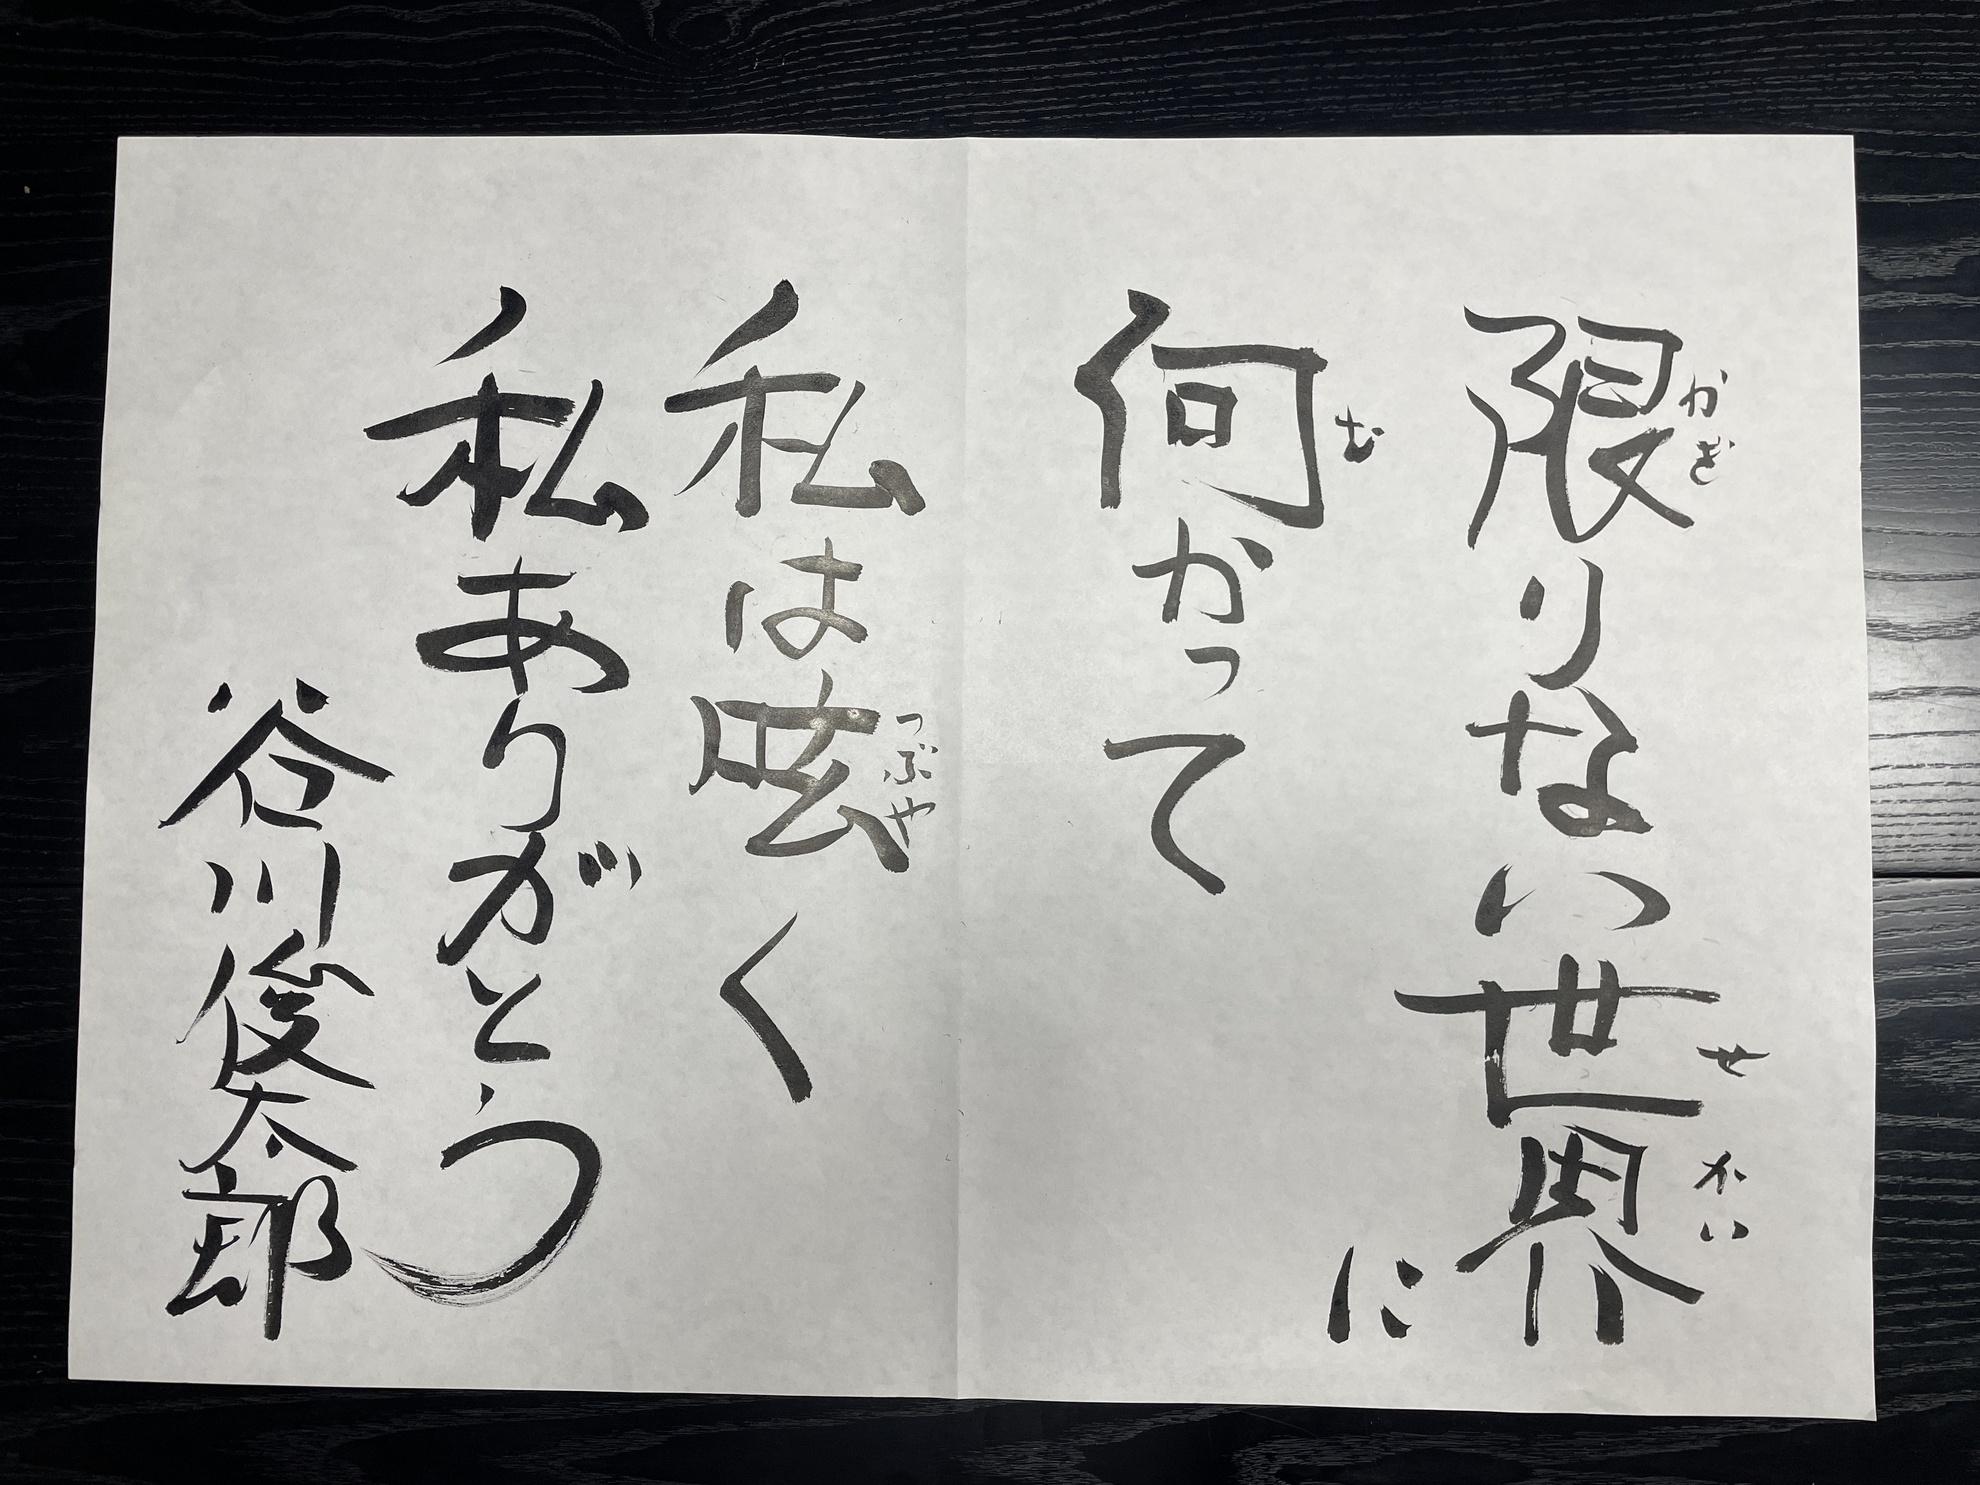 限りない世界に
かぎ
せかい
向かって
む
私は呟く
つぶや
私ありがとう
谷川俊太郎